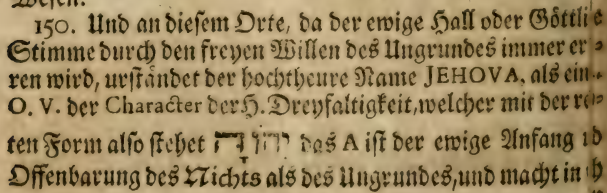 150. Und an diesem Orte, da der ewige Hall oder Göttli
Stimme durch den freyen Willen deß Ungrundes immer er
ren wird, urständet der hochtheure Name JEHOVA, als ein
O. V. der Character der H. Dreyfaltigkeit, welcher mit der
ten Form also stehet das A ist der ewige Anfang
Offenbarung des Nichts als des Ungrundes, und macht in